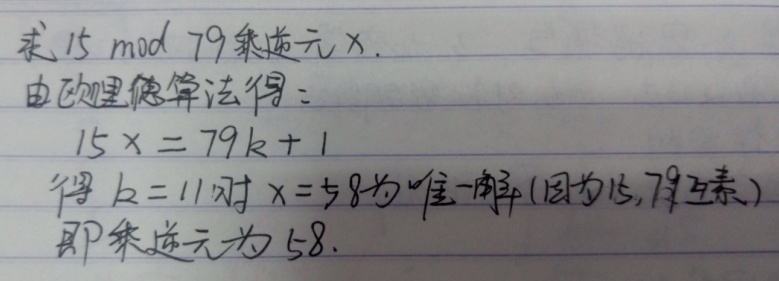 求 15 mod 79 乘逆元 x.
由欧里德算法得:
15x = 79k + 1
得 k = 11 时 x = 58 为唯一解 (因为 15, 79 互素)
即乘逆元为 58.